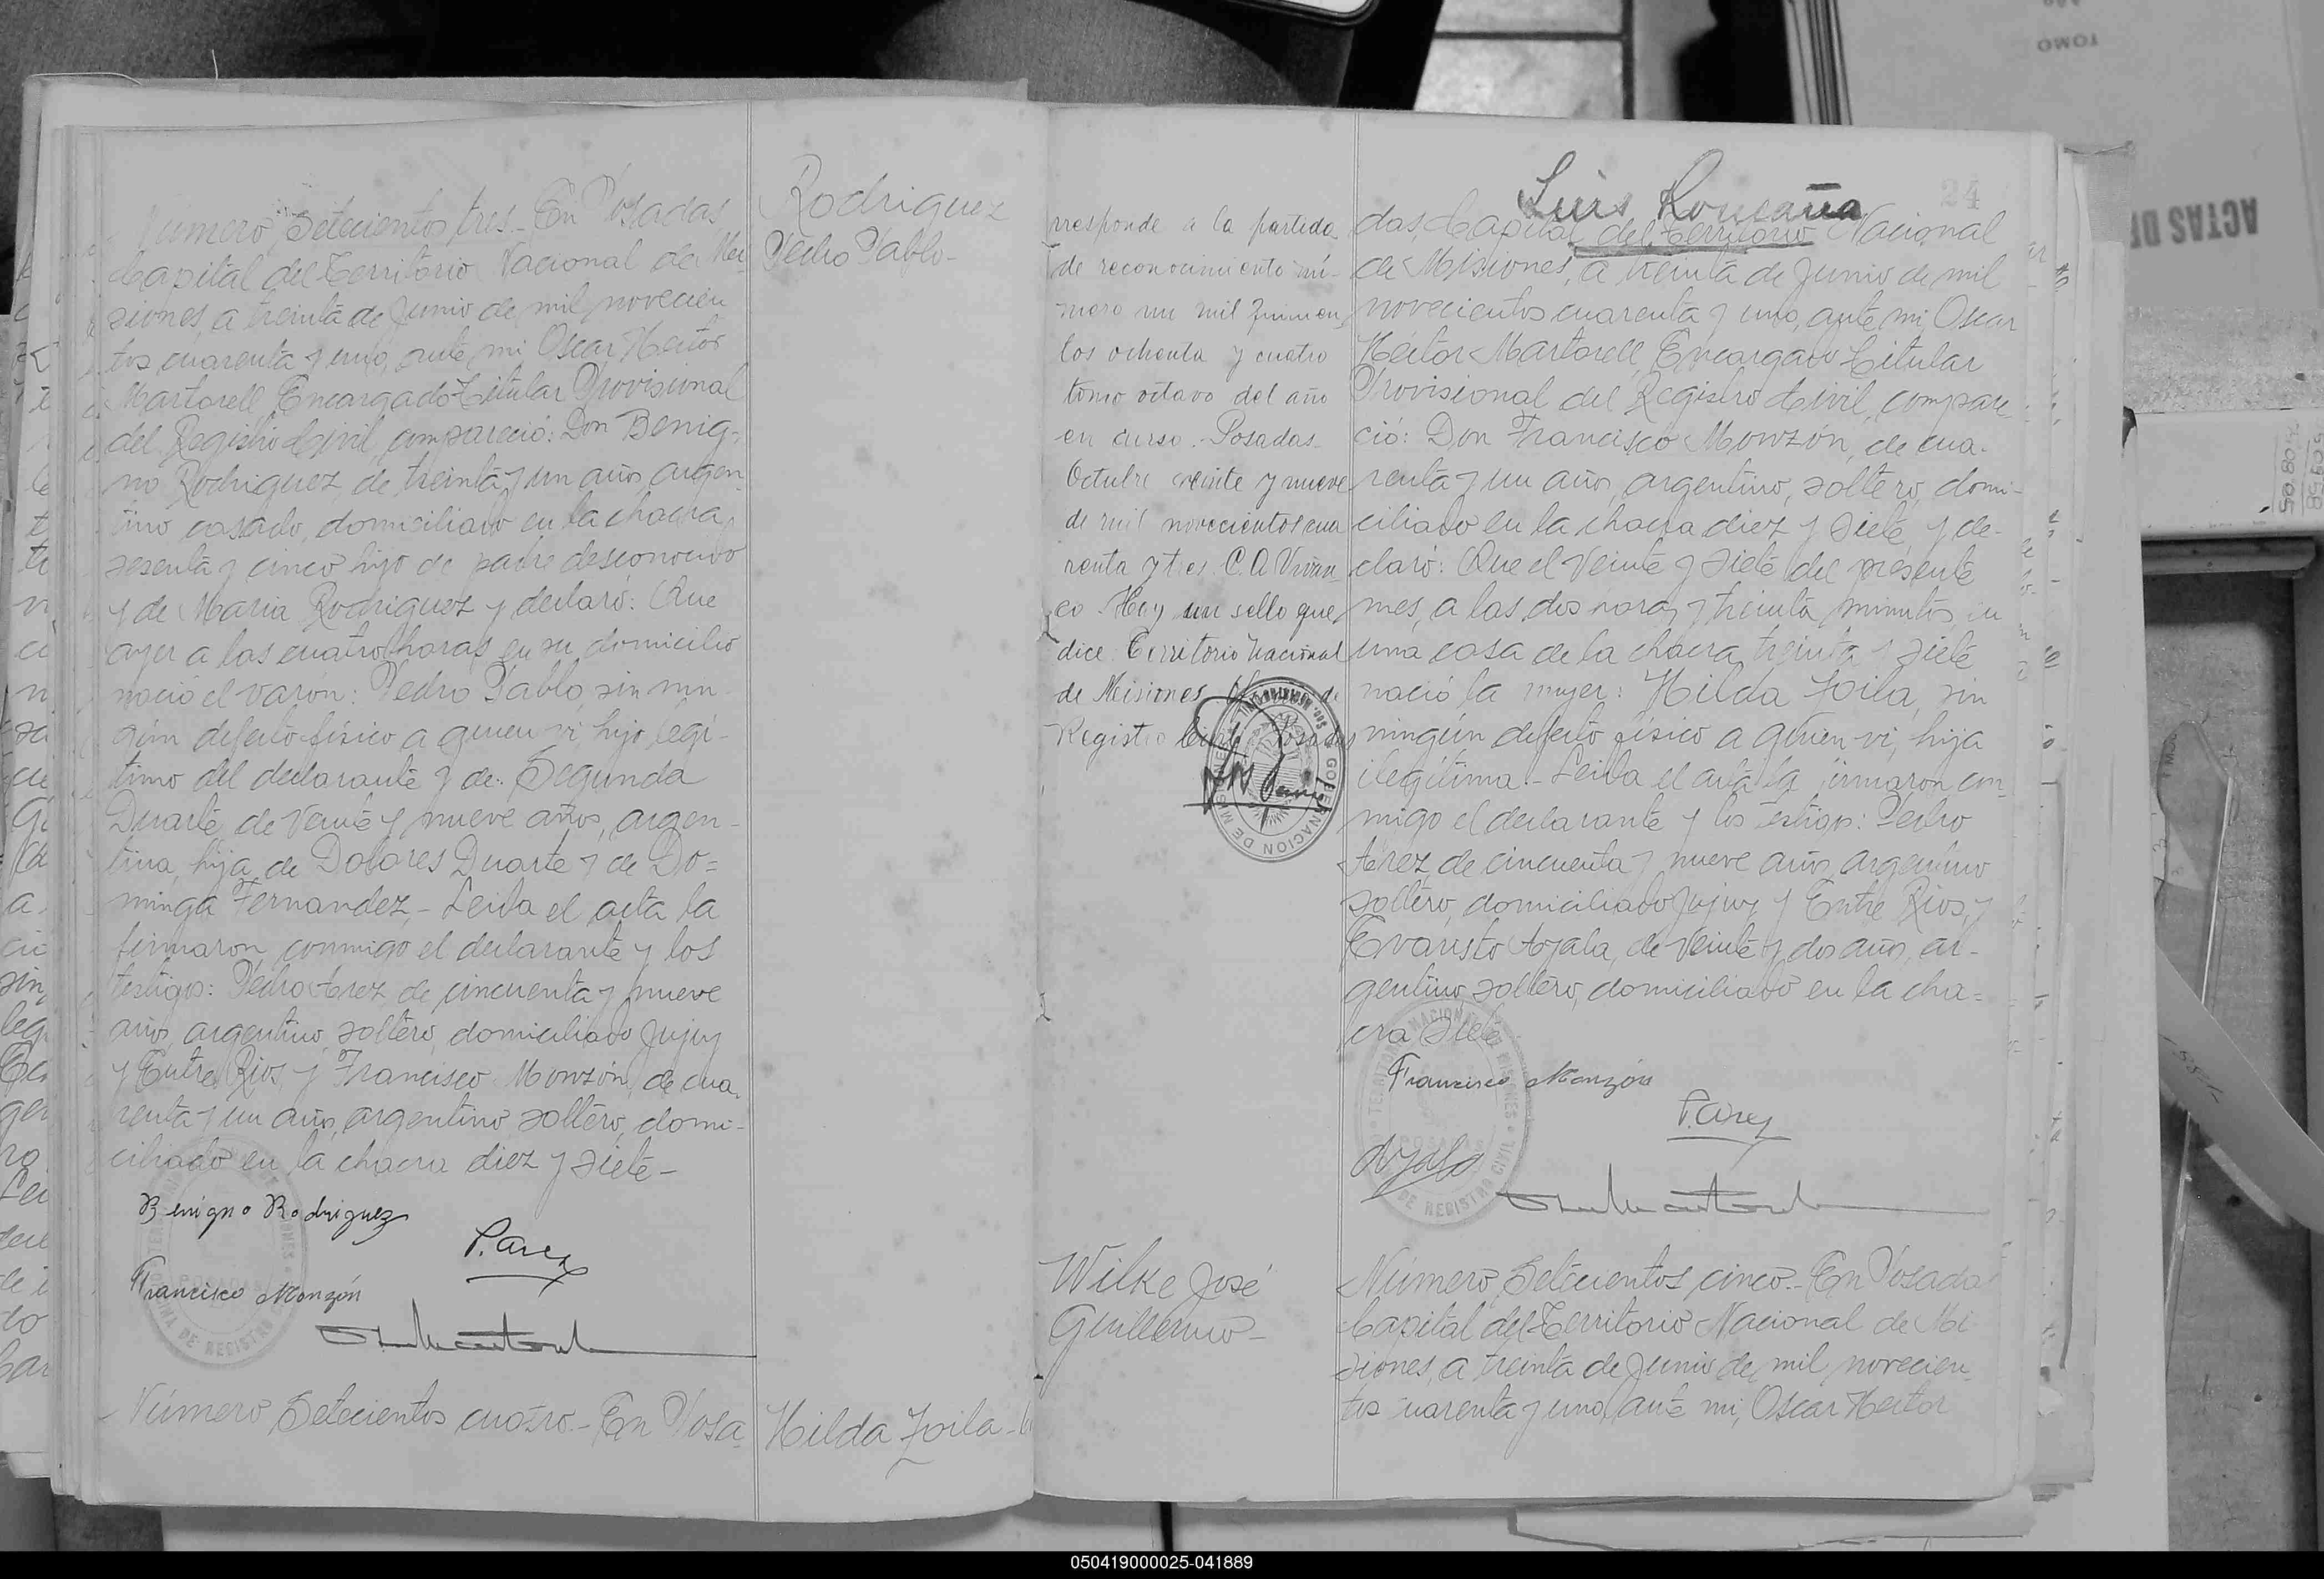 Número Setecientos tres.- En Posadas
Capital del Territorio Nacional de Mi-
siones, a treinta de Junio de mil novecien
tos cuarenta y uno, ante mi Oscar Heitor
Martorell, Encargado Titular Provisional
del Registro Civil, compareció: Don Benig-
no Rodriguez, de treinta y un años, argen-
tino casado, domiciliado en la chacra
sesenta y cinco hijo de padre desconocido
y de Maria Rodriguez y declaró: Que
ayer a las cuatro horas en su domicilio
nació el varón: Pedro Pablo, sin nin-
gún defecto físico a quien vi hijo legi-
timo del declarante y de: Segunda
Duarte, de veinte y nueve años, argen-
tina, hija de Dolores Duarte y de Do=
minga Fernandez.- Leida el acta la
firmaron conmigo el declarante y los
testigos: Pedro Arez de cincuenta y nueve
años, argentino, soltero, domiciliado Jujuy
y Entre Rios, y Francisco Monzón, de cua-
renta y un años, argentino, soltero, domi-
ciliado en la chacra diez y siete-
Benigno Rodriguez
P. Arez
Francisco Monzón
Número Setecientos cuatro.- En Posa-
Rodriguez
Pedro Pablo-
Hilda Zoila-
rresponde a la partida
de reconocimiento nú-
mero un mil quinien
tos ochenta y cuatro
tomo octavo del año
en curso.- Posadas-
Octubre veinte y nueve
de mil novecientos cua
renta y tres. C.A. Vivan
co. Hay un sello que
dice: Territorio Nacional
de Misiones de
Registro Civil Posadas
GOBERNACION DE MISIONES
Wilke José
Guillermo-
Luis
24
das, Capital del Territorio Nacional
de Misiones, a treinta de Junio de mil
novecientos cuarenta y uno, ante mi, Oscar
Heitor Martorell, Encargado Titular
Provisional del Registro Civil, compare-
ció: Don Francisco Monzón, de cua-
renta y un años, argentino, soltero, domi-
ciliado en la chacra diez y siete y de-
claró: Que el veinte y siete del presente
mes, a las dos horas y treinta minutos, en
una casa de la chacra treinta y siete
nació la mujer: Hilda Zoila, sin
ningún defecto físico a quien vi, hija
ilegítima.- Leida el acta la firmaron con
migo el declarante y los testigos: Pedro
Arez, de cincuenta y nueve años, argentino
soltero, domiciliado Jujuy y Entre Rios, y
Evaristo Ayala, de veinte y dos años, ar-
gentino, soltero, domiciliado en la cha=
cra siete
Francisco Monzón
P. Arez
Ayala
Número Setecientos cinco.- En Posadas
Capital del Territorio Nacional de Mi
siones, a treinta de Junio de mil novecien
tos cuarenta y uno, ante mi, Oscar Heitor
TOMO
ACTAS DE
050419000025-041889